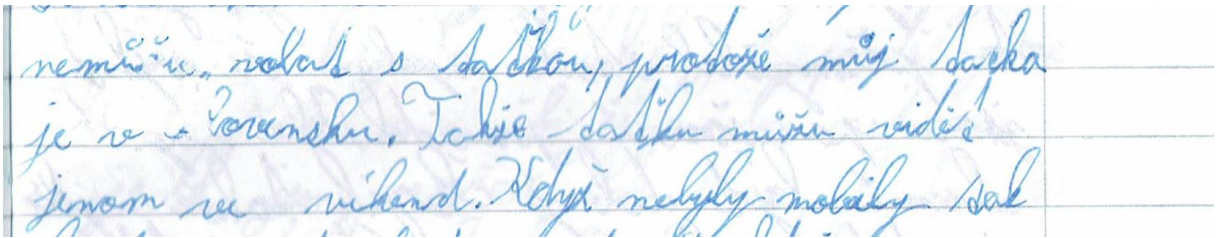 nemůžu volat s taťkou, protože můj tacka
je v Lovensku. Takže taťku můžu vidět
jenom ve vikend. Kdyź nebyly mobily tak